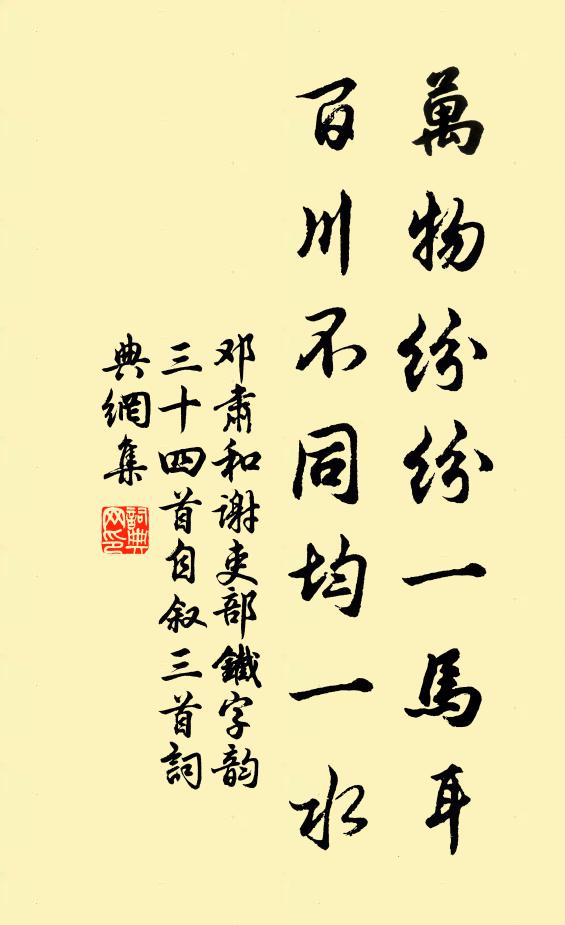 萬物紛紛一馬耳
百川不同均一水
邓肅和谢吏部鐵字韵
三十四首自叙三首詞
典網集
詞典网印